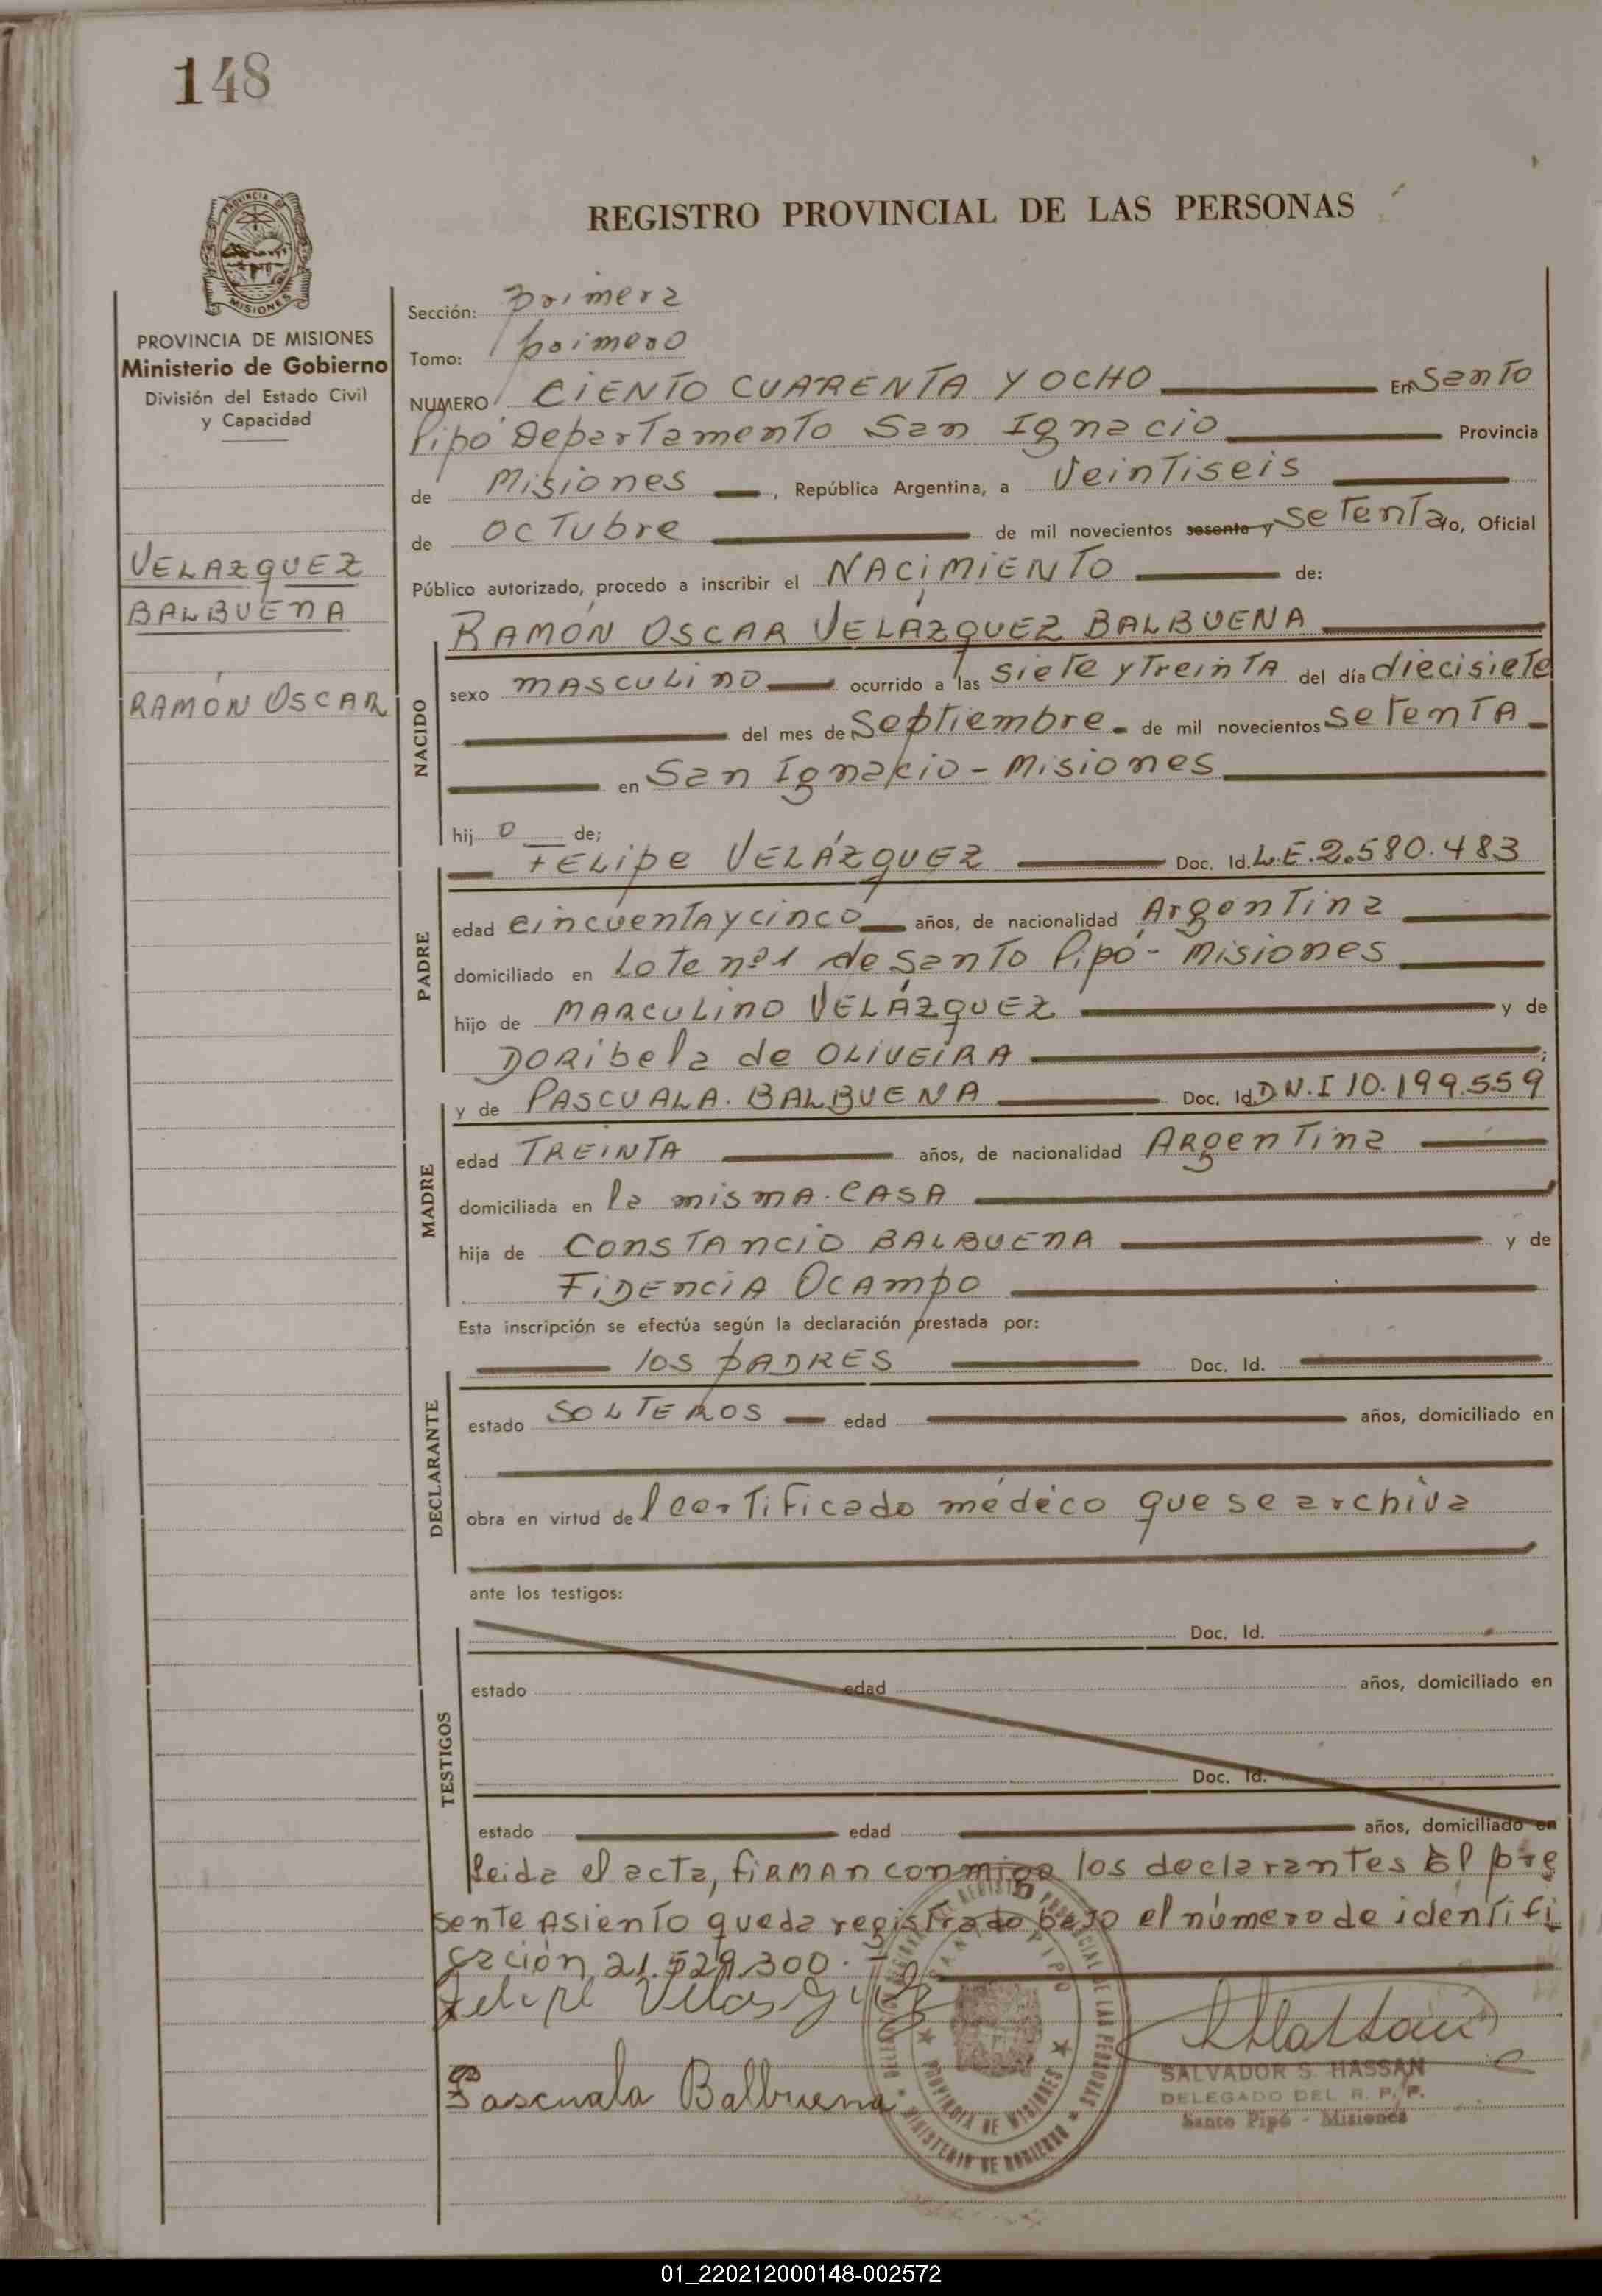 148
REGISTRO PROVINCIAL DE LAS PERSONAS
PROVINCIA DE
MISIONES
PROVINCIA DE MISIONES
Ministerio de Gobierno
División del Estado Civil
y Capacidad
VELAZQUEZ
BALBUENA
RAMÓN OSCAR
Sección: primera
Tomo: primero
NUMERO CIENTO CUARENTA Y OCHO En Santo
Pipó Departamento San Ignacio Provincia
de Misiones, República Argentina, a Veintiseis
de octubre de mil novecientos sesenta y setenta yo, Oficial
Público autorizado, procedo a inscribir el NACIMIENTO de:
NACIDO
RAMÓN OSCAR VELÁZQUEZ BALBUENA
sexo masculino ocurrido a las siete y treinta del día diecisiete
del mes de Septiembre de mil novecientos setenta
en San Ignacio - Misiones
hij o de;
PADRE
Felipe VELÁZQUEZ Doc. Id. L.E. 2.580.483
edad cincuenta y cinco años, de nacionalidad Argentina
domiciliado en Lote nº1 de Santo Pipó - Misiones
hijo de MARCULINO VELÁZQUEZ y de
DORibela de OLIVEIRA;
MADRE
y de PASCUALA. BALBUENA Doc. Id. D.N.I 10.199.559
edad TREINTA años, de nacionalidad Argentina
domiciliada en la misma. CASA
hija de CONSTANCIO BALBUENA y de
FIDENCIA OCAMPO
Esta inscripción se efectúa según la declaración prestada por:
DECLARANTE
los PADRES Doc. Id.
estado SOLTEROS edad años, domiciliado en
obra en virtud de l certificado médico que se archiva
ante los testigos:
TESTIGOS
Doc. Id.
estado edad años, domiciliado en
Doc. Id.
estado edad años, domiciliado en
Leida el acta, firman conmigo los declarantes El pre
sente Asiento queda registrado bajo el número de identifi
cación 21.529.300.
Felipe Velasquez
Pascuala Balbuena
SANTO PIPO
PROVINCIA DE MISIONES
MINISTERIO DE GOBIERNO
REGISTRO PROVINCIAL DE LAS PERSONAS
SALVADOR S. HASSAN
DELEGADO DEL R. P. P.
Santo Pipó - Misiones
01_220212000148-002572